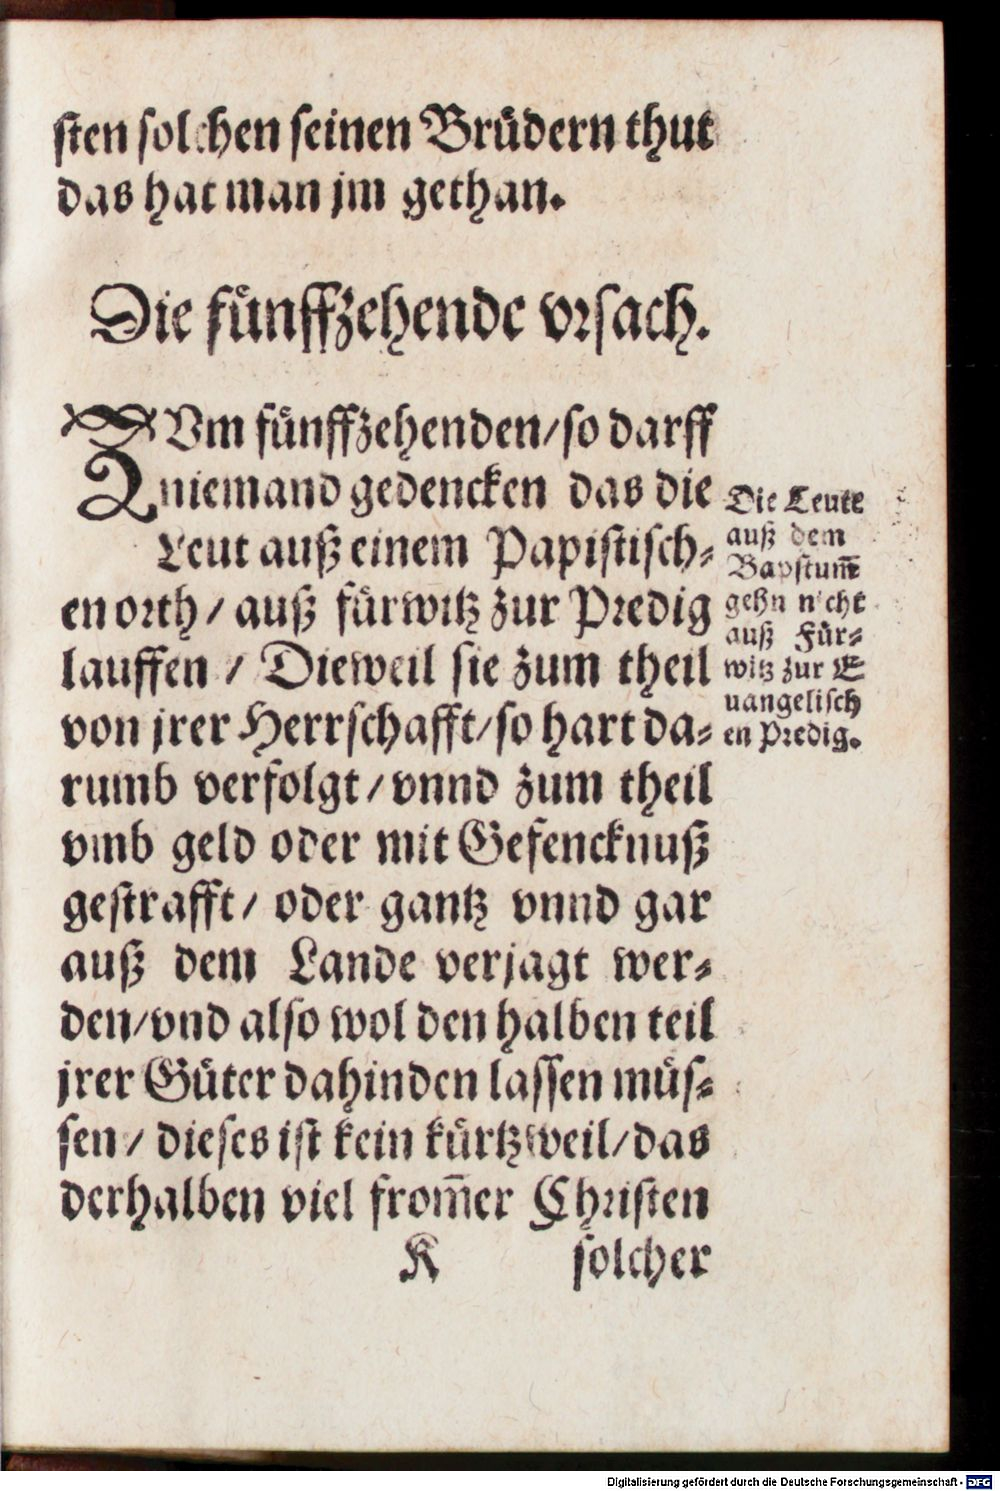 sten solchen seinen Brüdern thut
das hat man jm gethan.
Die fünffzehende vrsach.
ZVm fünffzehenden/so darff
niemand gedencken das die
Leut auß einem Papistisch-
en orth/ auß fürwitz zur Predig
lauffen / Dieweil sie zum theil
von jrer Herrschafft/so hart da-
rumb verfolgt/vnnd zum theil
vmb geld oder mit Gefencknuß
gestrafft/ oder gantz vnnd gar
auß dem Lande verjagt wer-
den/vnd also wol den halben teil
jrer Güter dahinden lassen müs-
sen/ dieses ist kein kürtzweil/das
derhalben viel from̃er Christen
K solcher
Die Leute
auß dem
Bapstum̃
gehn nicht
auß Für-
witz zur E
uangelisch
en Predig.
Digitalisierung gefördert durch die Deutsche Forschungsgemeinschaft - DFG